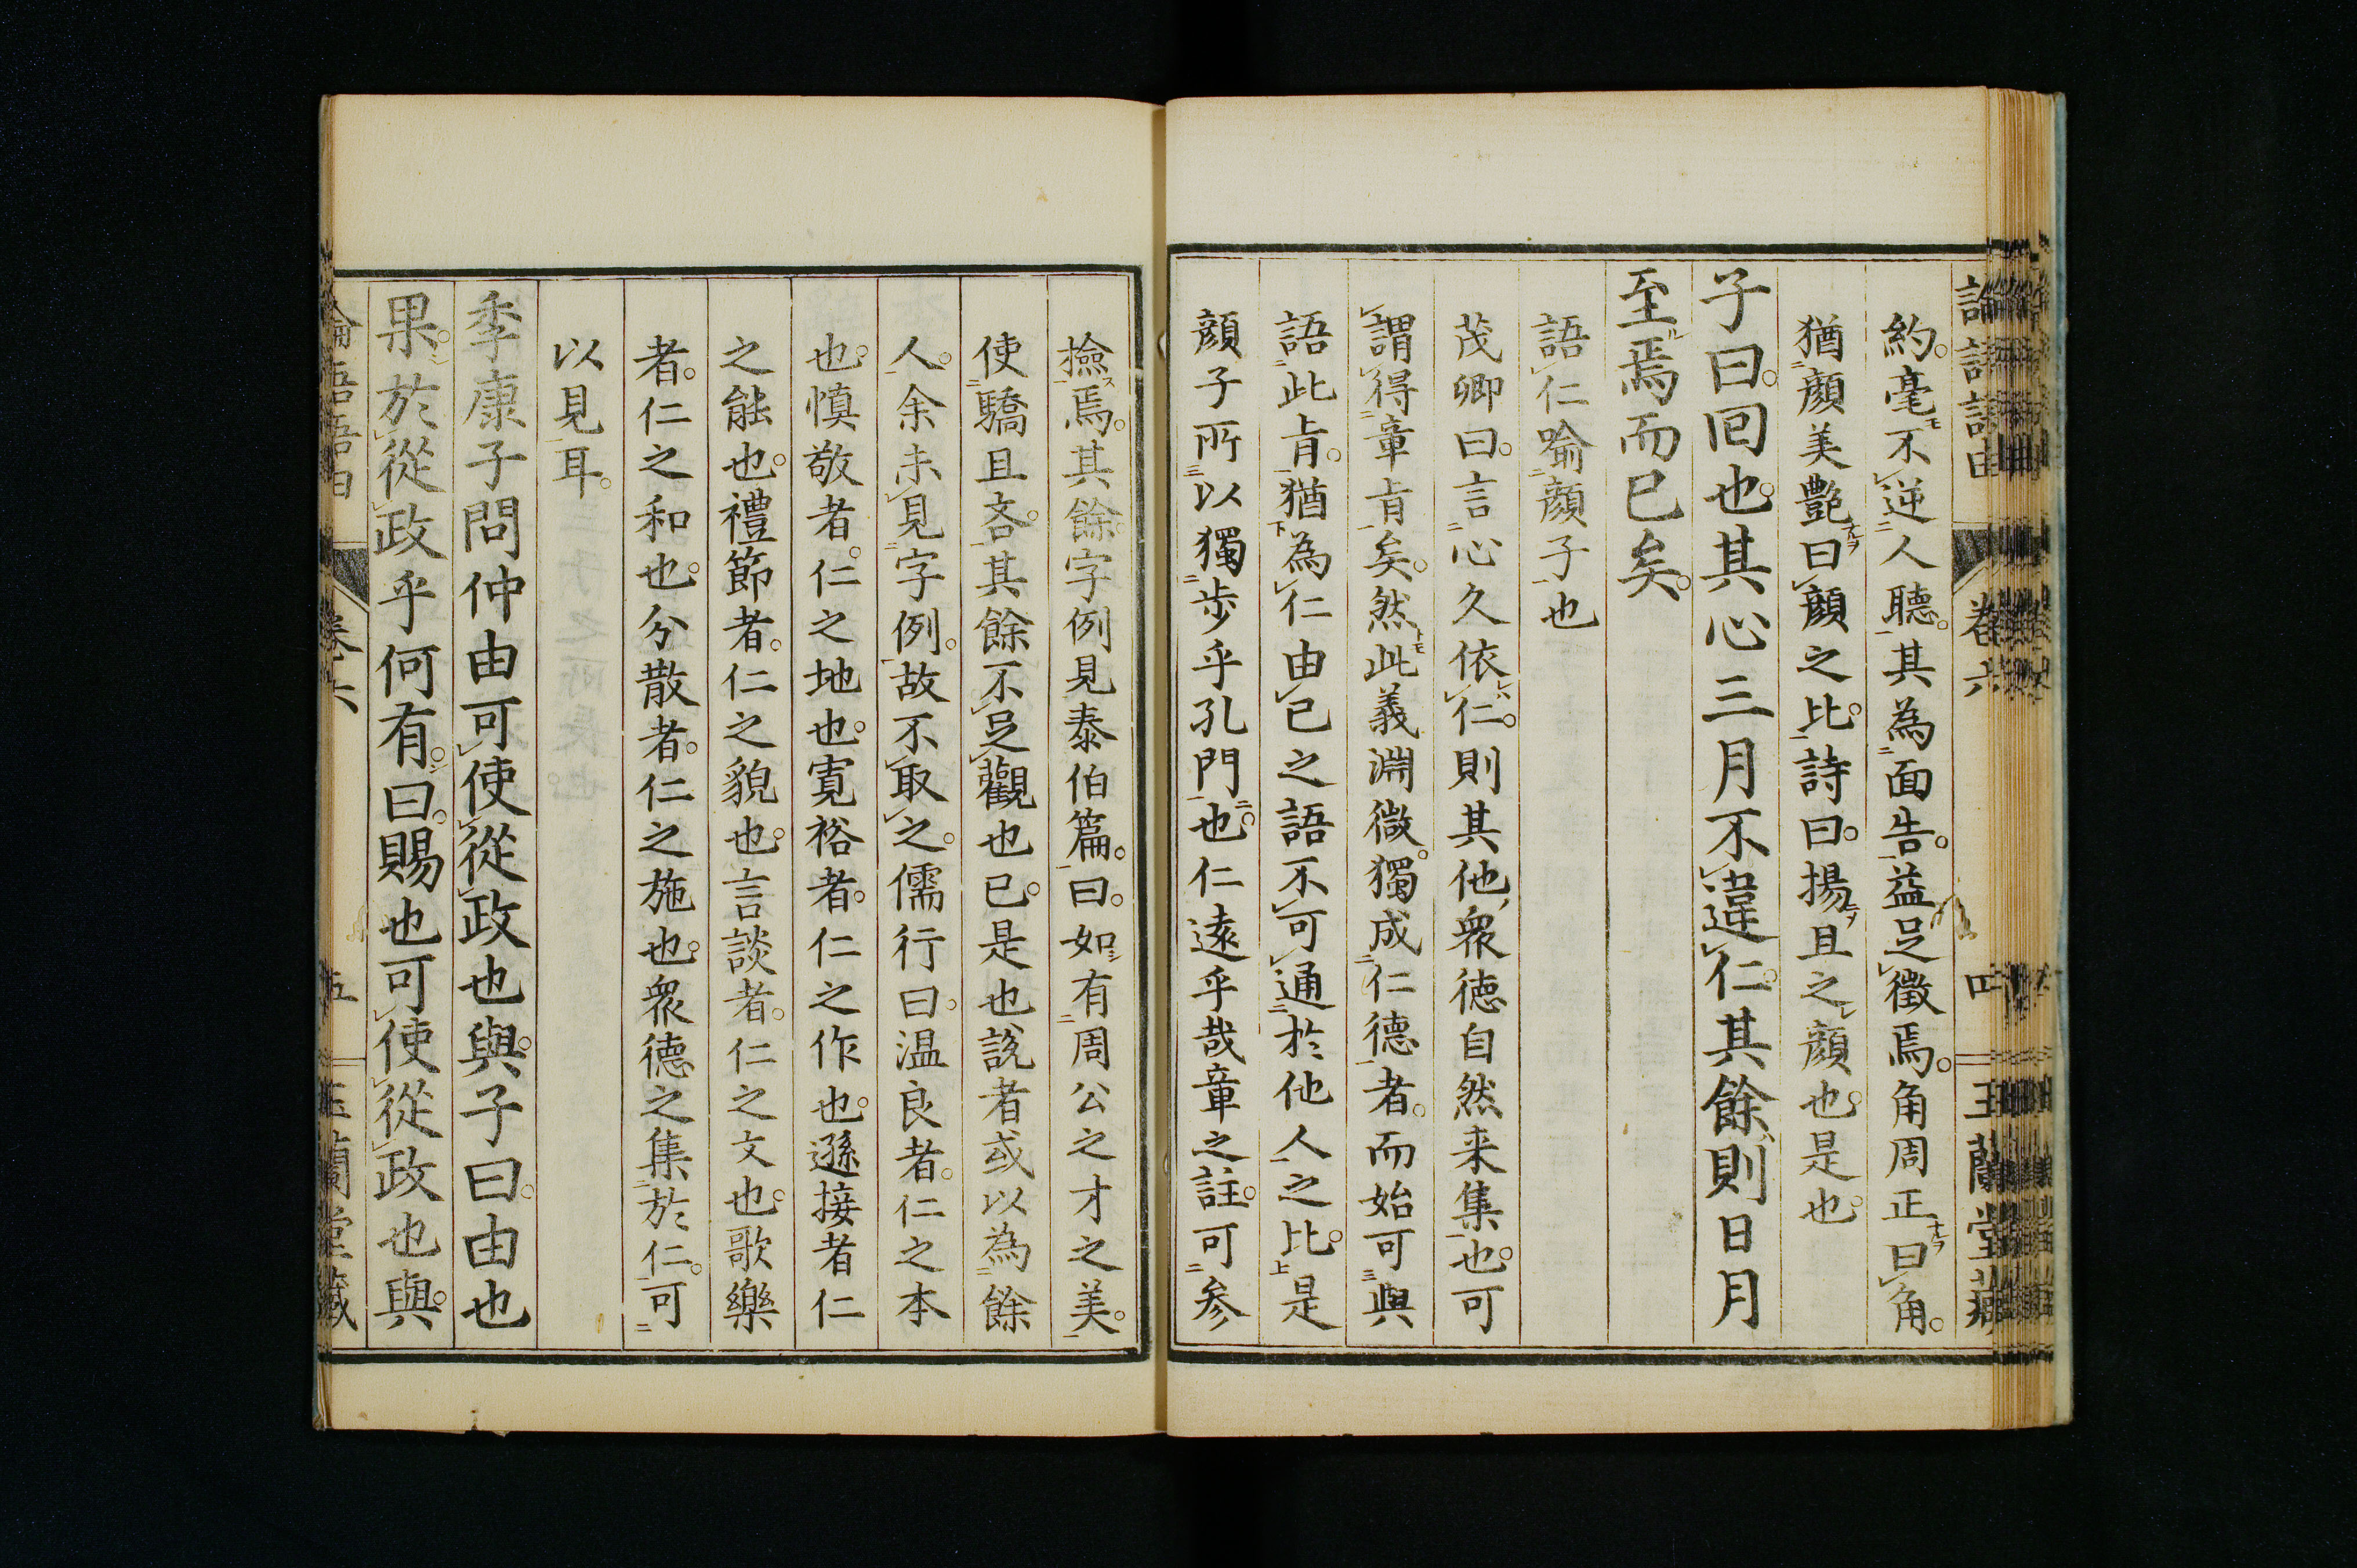 論語語由 卷六 四 玉蘭堂藏
約。毫不逆人聽。其為面告。益足徵焉。角周正曰角。
猶顏美艷曰顏之比。詩曰。揚且之顏也。是也。
子曰。回也。其心三月不違仁。其餘則日月
至焉而已矣。
語仁喻顏子也
茂卿曰。言心久依仁。則其他衆德自然来集也。可
謂得章肯矣。然此義淵微。獨成仁德者。而始可與
語此肯。猶為仁由己之語不可通於他人之比。是
顏子所以獨步乎孔門也。仁遠乎哉章之註。可参
撿焉。其餘字例見泰伯篇。曰。如有周公之才之美。
使驕且吝。其餘不足觀也已。是也。說者或以為餘
人。余未見字例。故不取之。儒行曰。温良者。仁之本
也。慎敬者。仁之地也。寬裕者。仁之作也。遜接者仁
之能也。禮節者。仁之貌也。言談者。仁之文也。歌樂
者。仁之和也。分散者。仁之施也。衆德之集於仁。可
以見耳。
季康子問仲由可使從政也與。子曰。由也
果。於從政乎何有。曰。賜也可使從政也與。
論語語由 卷六 五 玉蘭堂藏